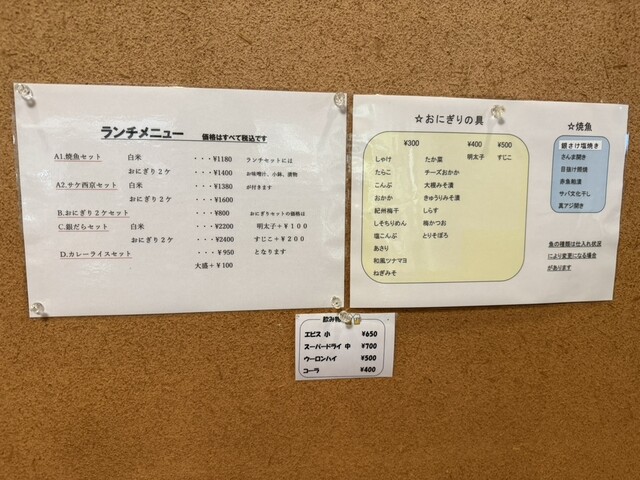 ランチメニュー 価格はすべて税込です
A1.焼魚セット 白米 ・・・¥1180 ランチセットには
おにぎり2ケ ・・・¥1400 お味噌汁、小鉢、漬物
A2.サケ西京セット 白米 ・・・¥1380 が付きます
おにぎり2ケ ・・・¥1600
B.おにぎり2ケセット ・・・¥800 おにぎりセットの価格は
C.銀だらセット 白米 ・・・¥2200 明太子+¥100
おにぎり2ケ ・・・¥2400 すじこ+¥200
D.カレーライスセット ・・・¥950 となります
大盛+¥100
☆おにぎりの具
¥300 ¥400 ¥500
しゃけ たか菜 明太子 すじこ
たらこ チーズおかか
こんぶ 大根みそ漬
おかか きゅうりみそ漬
紀州梅干 しらす
しそちりめん 梅かつお
塩こんぶ とりそぼろ
あさり
和風ツナマヨ
ねぎみそ
☆焼魚
銀さけ塩焼き
さんま開き
目抜け照焼
赤魚粕漬
サバ文化干し
真アジ開き
魚の種類は仕入れ状況
により変更になる場合
があります
飲み物
エビス 小 ¥650
スーパードライ 中 ¥700
ウーロンハイ ¥500
コーラ ¥400